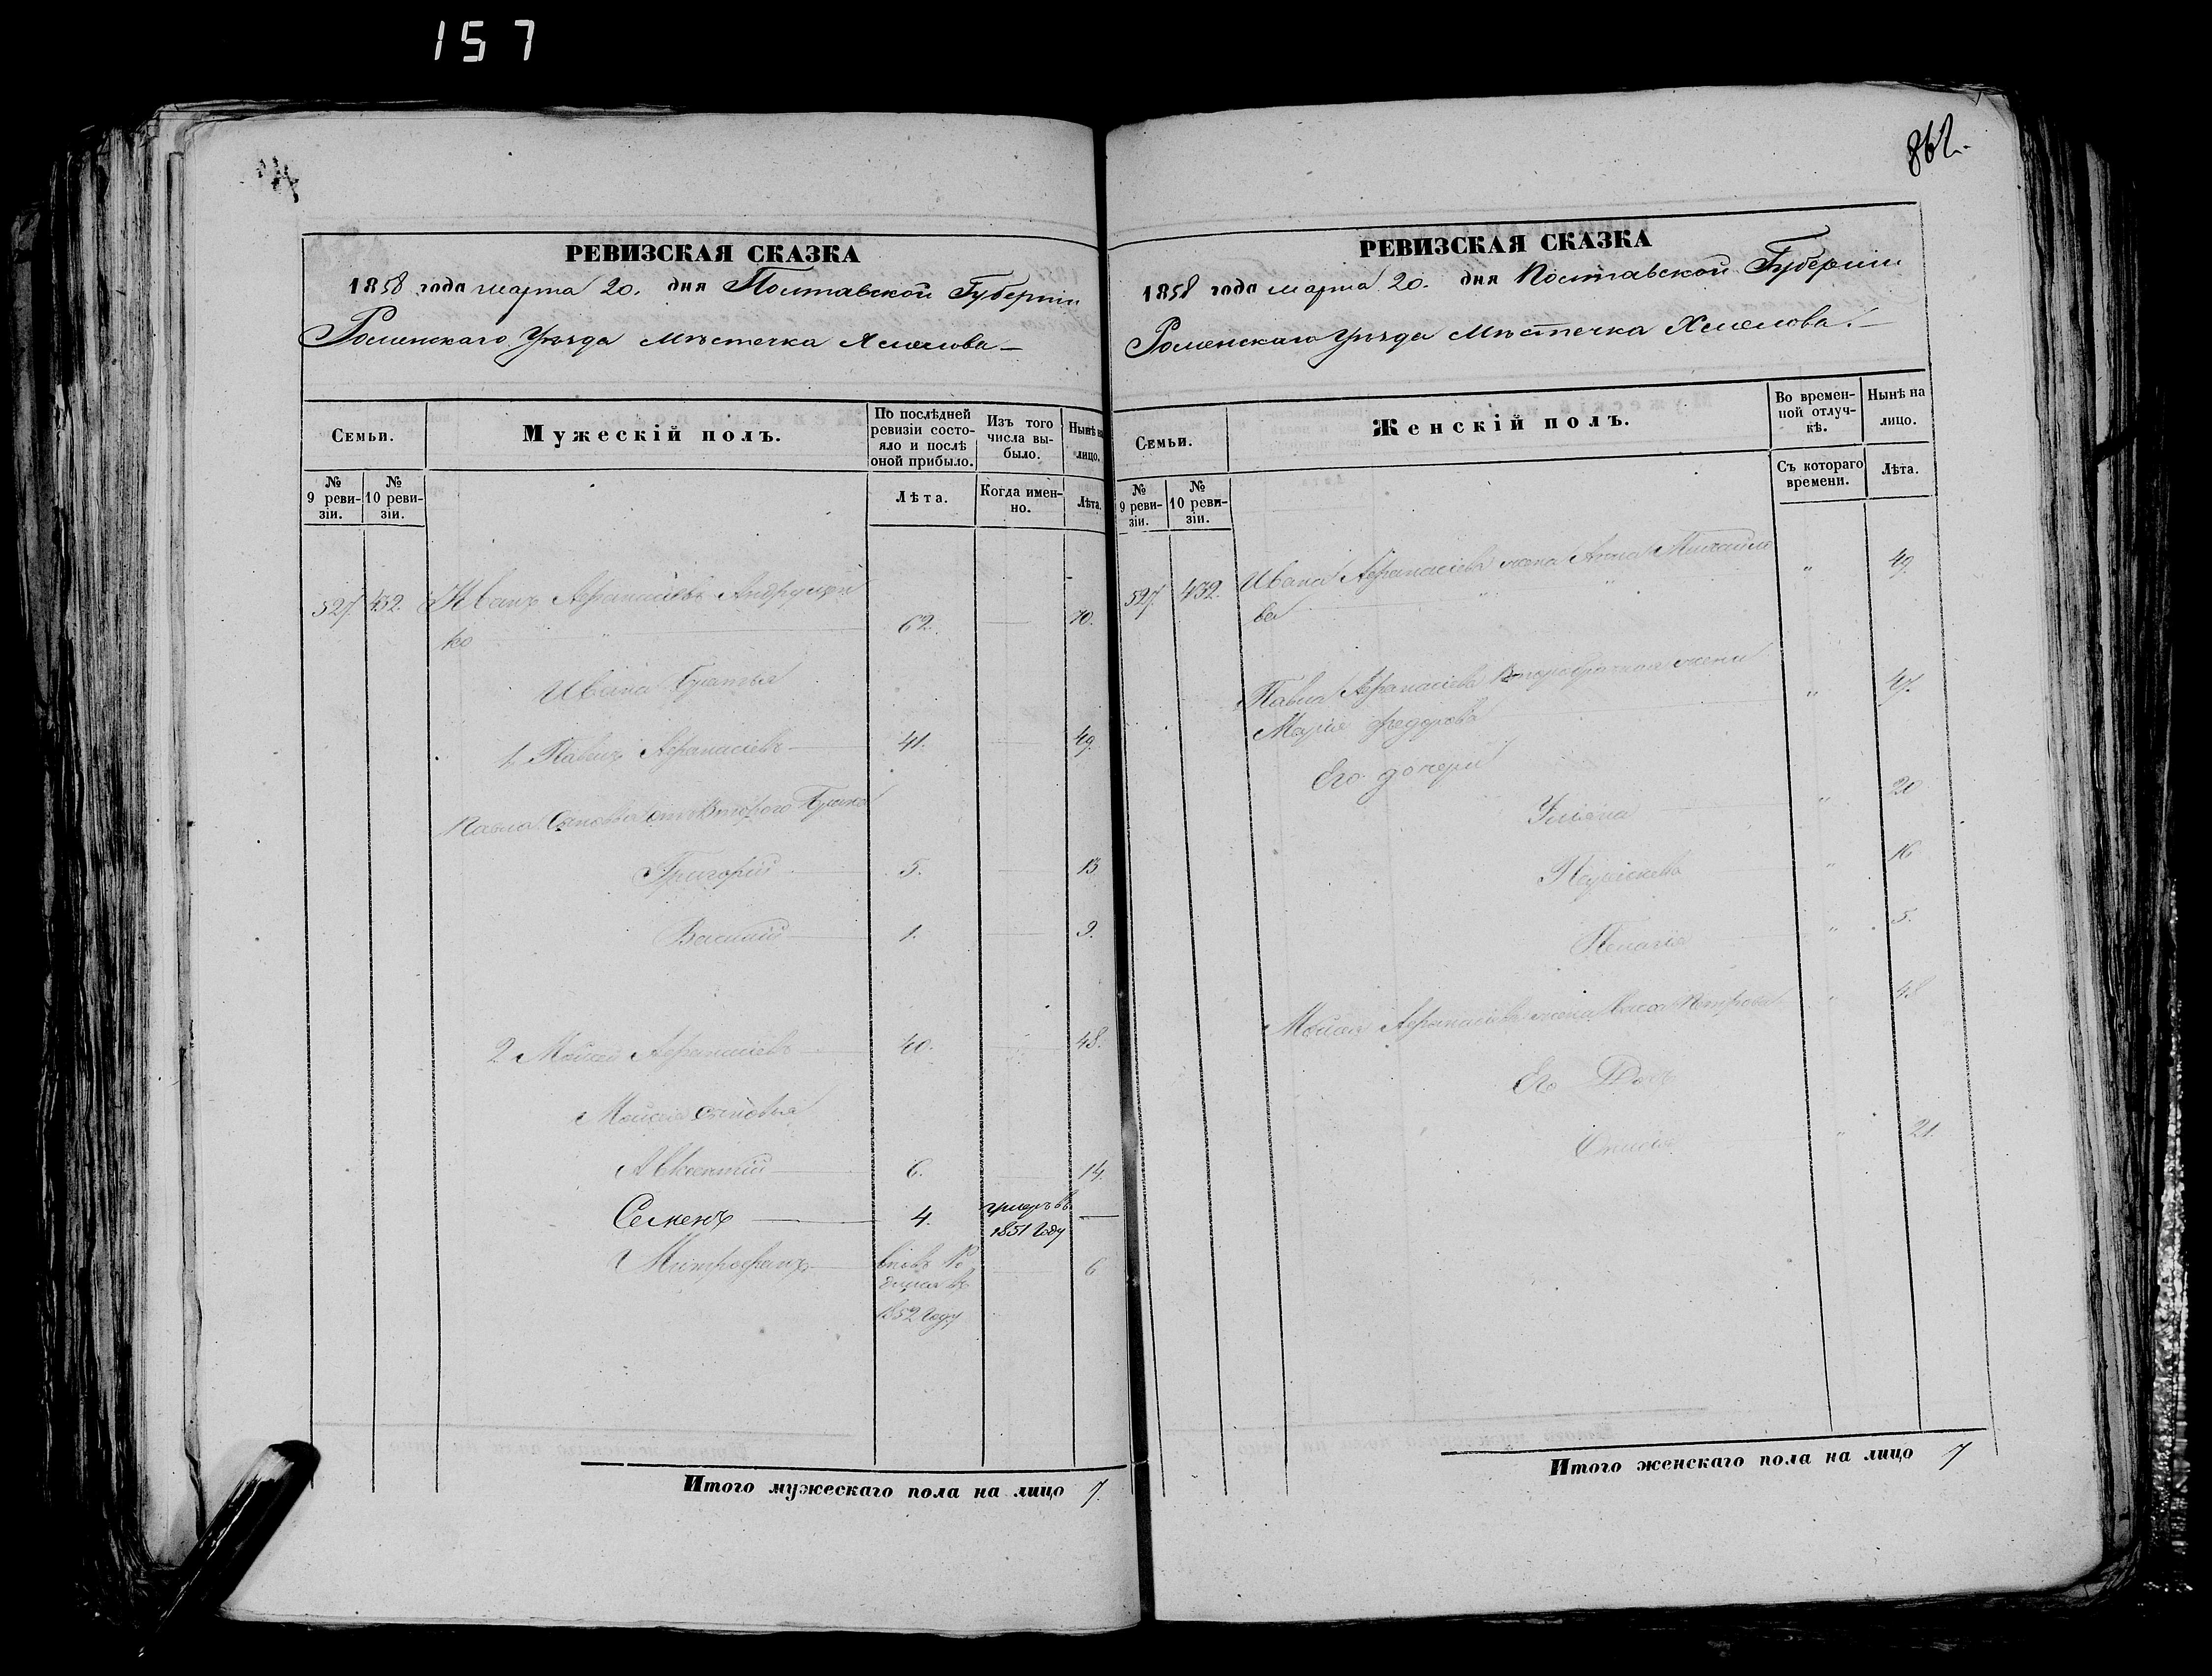 157
862.
РЕВИЗСКАЯ СКАЗКА
1858 года марта 20. дня Полтавской Губерніи
Роменскаго Уѣзда Мѣстечка Хмелова
Семьи.
Мужескій полъ.
По послѣдней ревизіи состояло и послѣ оной прибыло.
Изъ того числа выбыло.
Нынѣ на лицо.
№ 9 ревизіи.
№ 10 ревизіи.
Лѣта.
Когда именно.
Лѣта.
527. 432. Иванъ Афанасіевъ Андрущен
ко 62. 70.
Ивана Братья
1, Павелъ Афанасіевъ 41. 49.
Павла Сыновья отъ Втораго Брака
Григорій 5. 13
Василій 1. 9.
2 Мойсей Афанасіевъ 40. 48.
Мойсея Сыновья
Авксентій 6. 14.
Семенъ 4. умеръ въ 1851 Году —
Митрофанъ вновь Ро
дился въ 6
1852 Году
Итого мужескаго пола на лицо 7.
РЕВИЗСКАЯ СКАЗКА
1858 года марта 20. дня Полтавской Губерніи
Роменскаго Уѣзда Мѣстечка Хмелова.
Семьи.
Женскій полъ.
Во временной отлучкѣ.
Нынѣ на лицо.
№ 9 ревизіи.
№ 10 ревизіи.
Съ котораго времени.
Лѣта.
527. 432. Ивана Афанасіева жена Анна Михайло " 49
ва
Павла Афанасіева Второбрачная жена
Марія Федорова " 47.
Его дочери
Уліяна " 20
" 16
Пелагія " 5.
Мойсея Афанасіева жена Петрова " 48
Его Дочь
" 21.
Итого женскаго пола на лицо 7